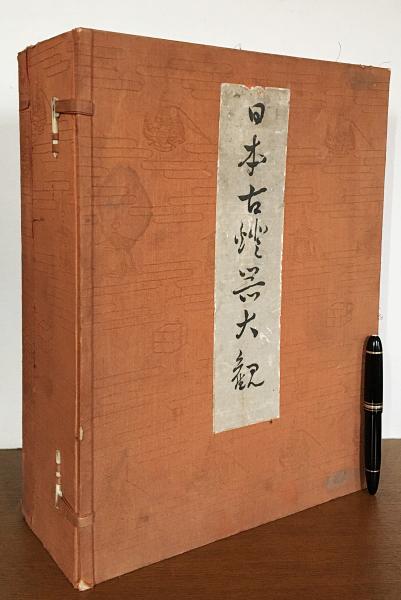 日本古燈器大観